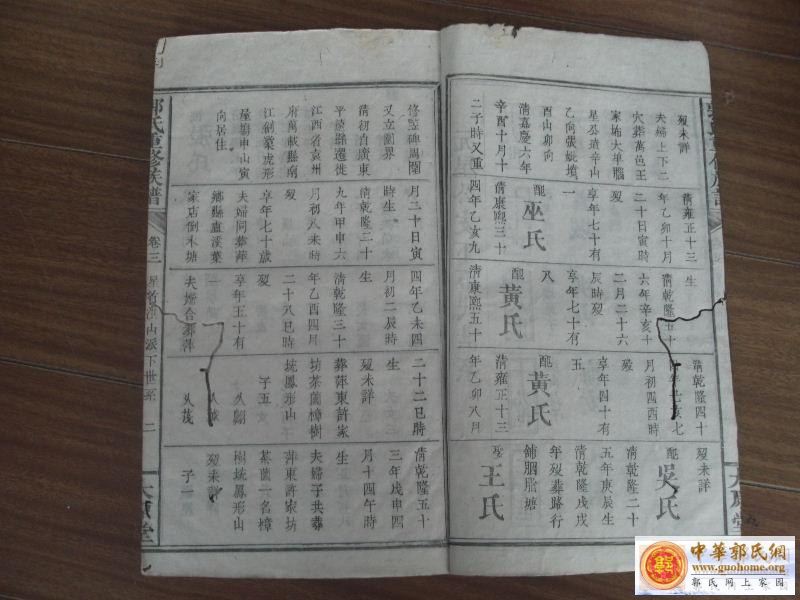 歿未詳
夫婦上下二
穴葬萬邑王
家坳大車腦
星公墳辛山
乙向張蚍墳
酉山卯向
清嘉慶六年
辛酉十月十
二子時又重
清雍正十三
年乙卯十月
二十日寅時
歿
享年七十有
一
配巫氏
清康熙三十
四年乙亥九
生
清乾隆五十
六年辛亥十
二月二十六
辰時歿
享年七十有
八
配黃氏
清康熙五十
清乾隆四十
年 亥七
月初四酉時
歿
享年四十有
五
配黃氏
清雍正十三
年乙卯八月
歿未詳
配吳氏
清乾隆二十
五年庚辰生
清乾隆戊戌
年歿葬路行
鋪胭脂塘
娶王氏
修監碑周圍
又立圍界
清初自廣東
平遠縣遷徙
江西省袁州
府萬載縣南
江劍窠虎形
屋塲申山寅
向居住
月三十日寅
時生
清乾隆二十
九年甲申六
月初八未時
歿
享年七十歲
夫婦同葬萍
鄉縣盧溪葉
家店倒木塘
四年乙未四
月初二辰時
生
清乾隆三十
年乙酉四月
二十八巳時
歿
享年五十有
一
夫婦合葬萍
二十二巳時
生
歿未詳
葬萍東許家
坊茶園樟樹
坑鳳形山
子五
久翮
久茂
清乾隆五十
三年戊申四
月十四午時
生
夫婦子共葬
萍東許家坊
茶園一名樟
樹坑鳳形山
歿未詳
子一
郭氏重修族譜
卷三
山派下世系
二
大原堂
中華郭氏網
www.guohome.org
郭氏网上家园